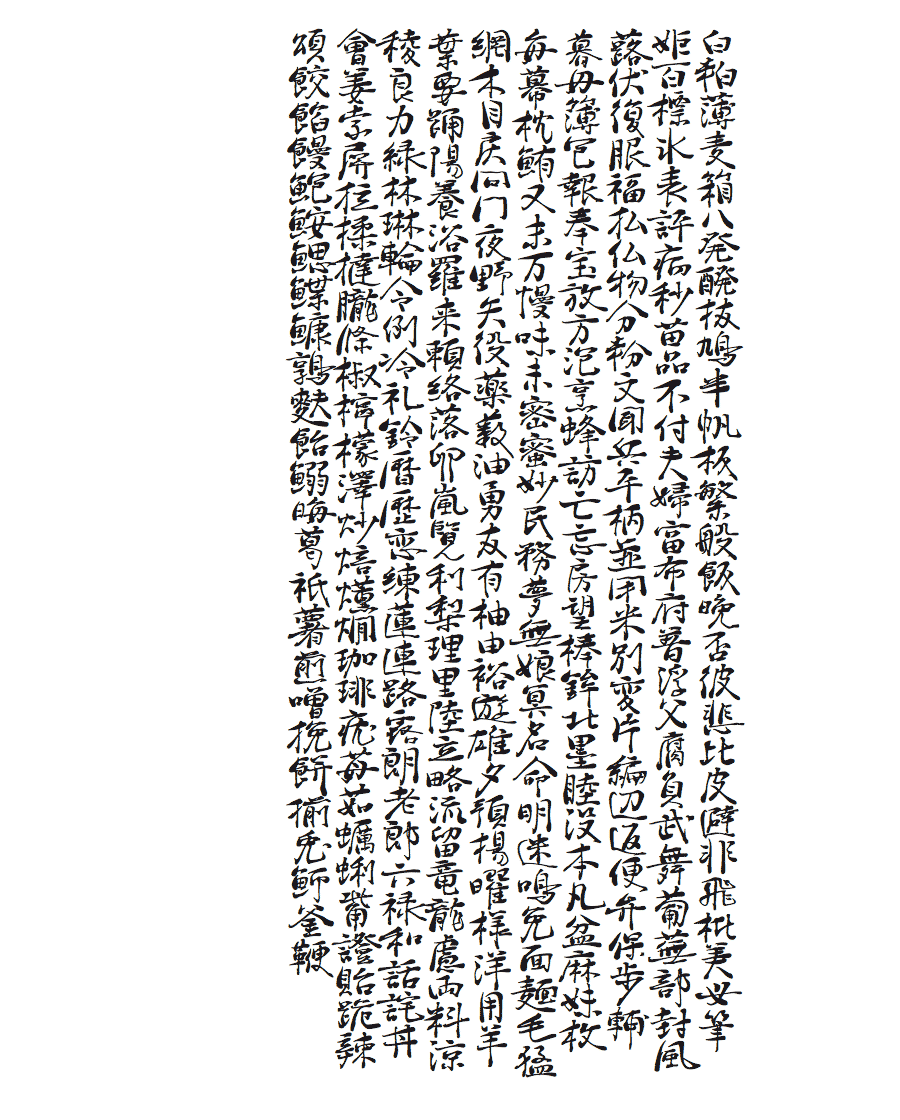 白粕薄麦箱八発醗抜鳩半帆板繁般飯晩否彼悲比皮避非飛枇美必筆
姫百標氷表評病秒苗品不付夫婦富布府普浮父腐負武舞葡蕪部封風
蕗伏復服福払仏物分粉文聞兵平柄並閉米別変片編辺返便弁保歩輔
暮母簿包報奉宝放方泡烹蜂訪亡忘房望棒鉾北墨睦没本凡盆麻妹枚
毎幕枕鮪又末万慢味未密蜜妙民務夢無娘冥名命明迷鳴免面麺毛猛
網木目戻問門夜野矢役薬薮油勇友有柚由裕遊雄夕預楊曜様洋用羊
葉要踊陽養浴羅来頼絡落卵嵐覧利梨理里陸立略流留竜龍慮両料涼
稜良力緑林琳輪令例冷礼鈴暦歴恋練蓮連路露朗老郎六禄和話詫丼
會姜孛屏拉揉撻朧條椒檸檬澤炒焙燻燗珈琲疣苺茹蠣蜊觜證貽跪辣
頌餃餡饅鮑鮟鰓鰈鱇鶉麩飴鰯晦葛祇薯煎噌挽餅揃兎鰤釜鞭